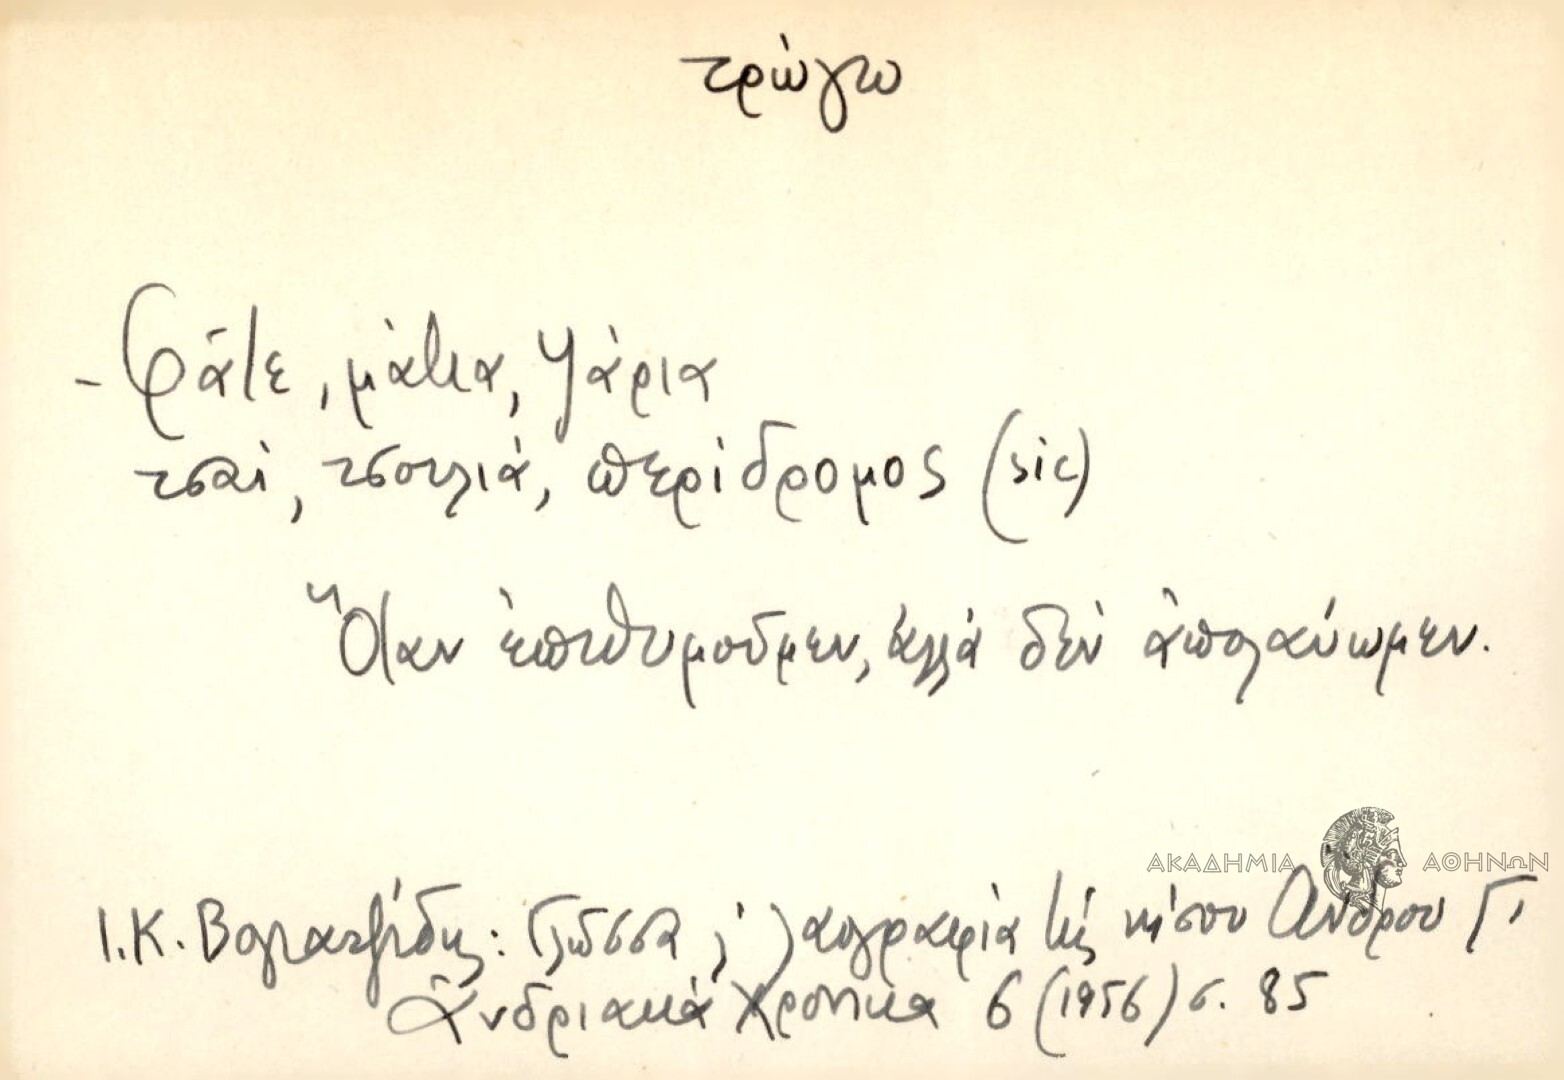 τρώγω
- Φᾶτε, μάτια, ψάρια
τσαί, τσοιλιά, περίδρομος (sic)
Ὅταν ἐπιθυμοῦμεν, ἀλλά δέν ἀπολαύωμεν.
ΑΚΑΔΗΜΙΑ ΑΘΗΝΩΝ
Ι. Κ. Βογιατζίδης: Γλῶσσα καί λαογραφία τῆς νήσου Ἄνδρου Γ'
Ἀνδριακά Χρονικα 6 (1956) σ. 85